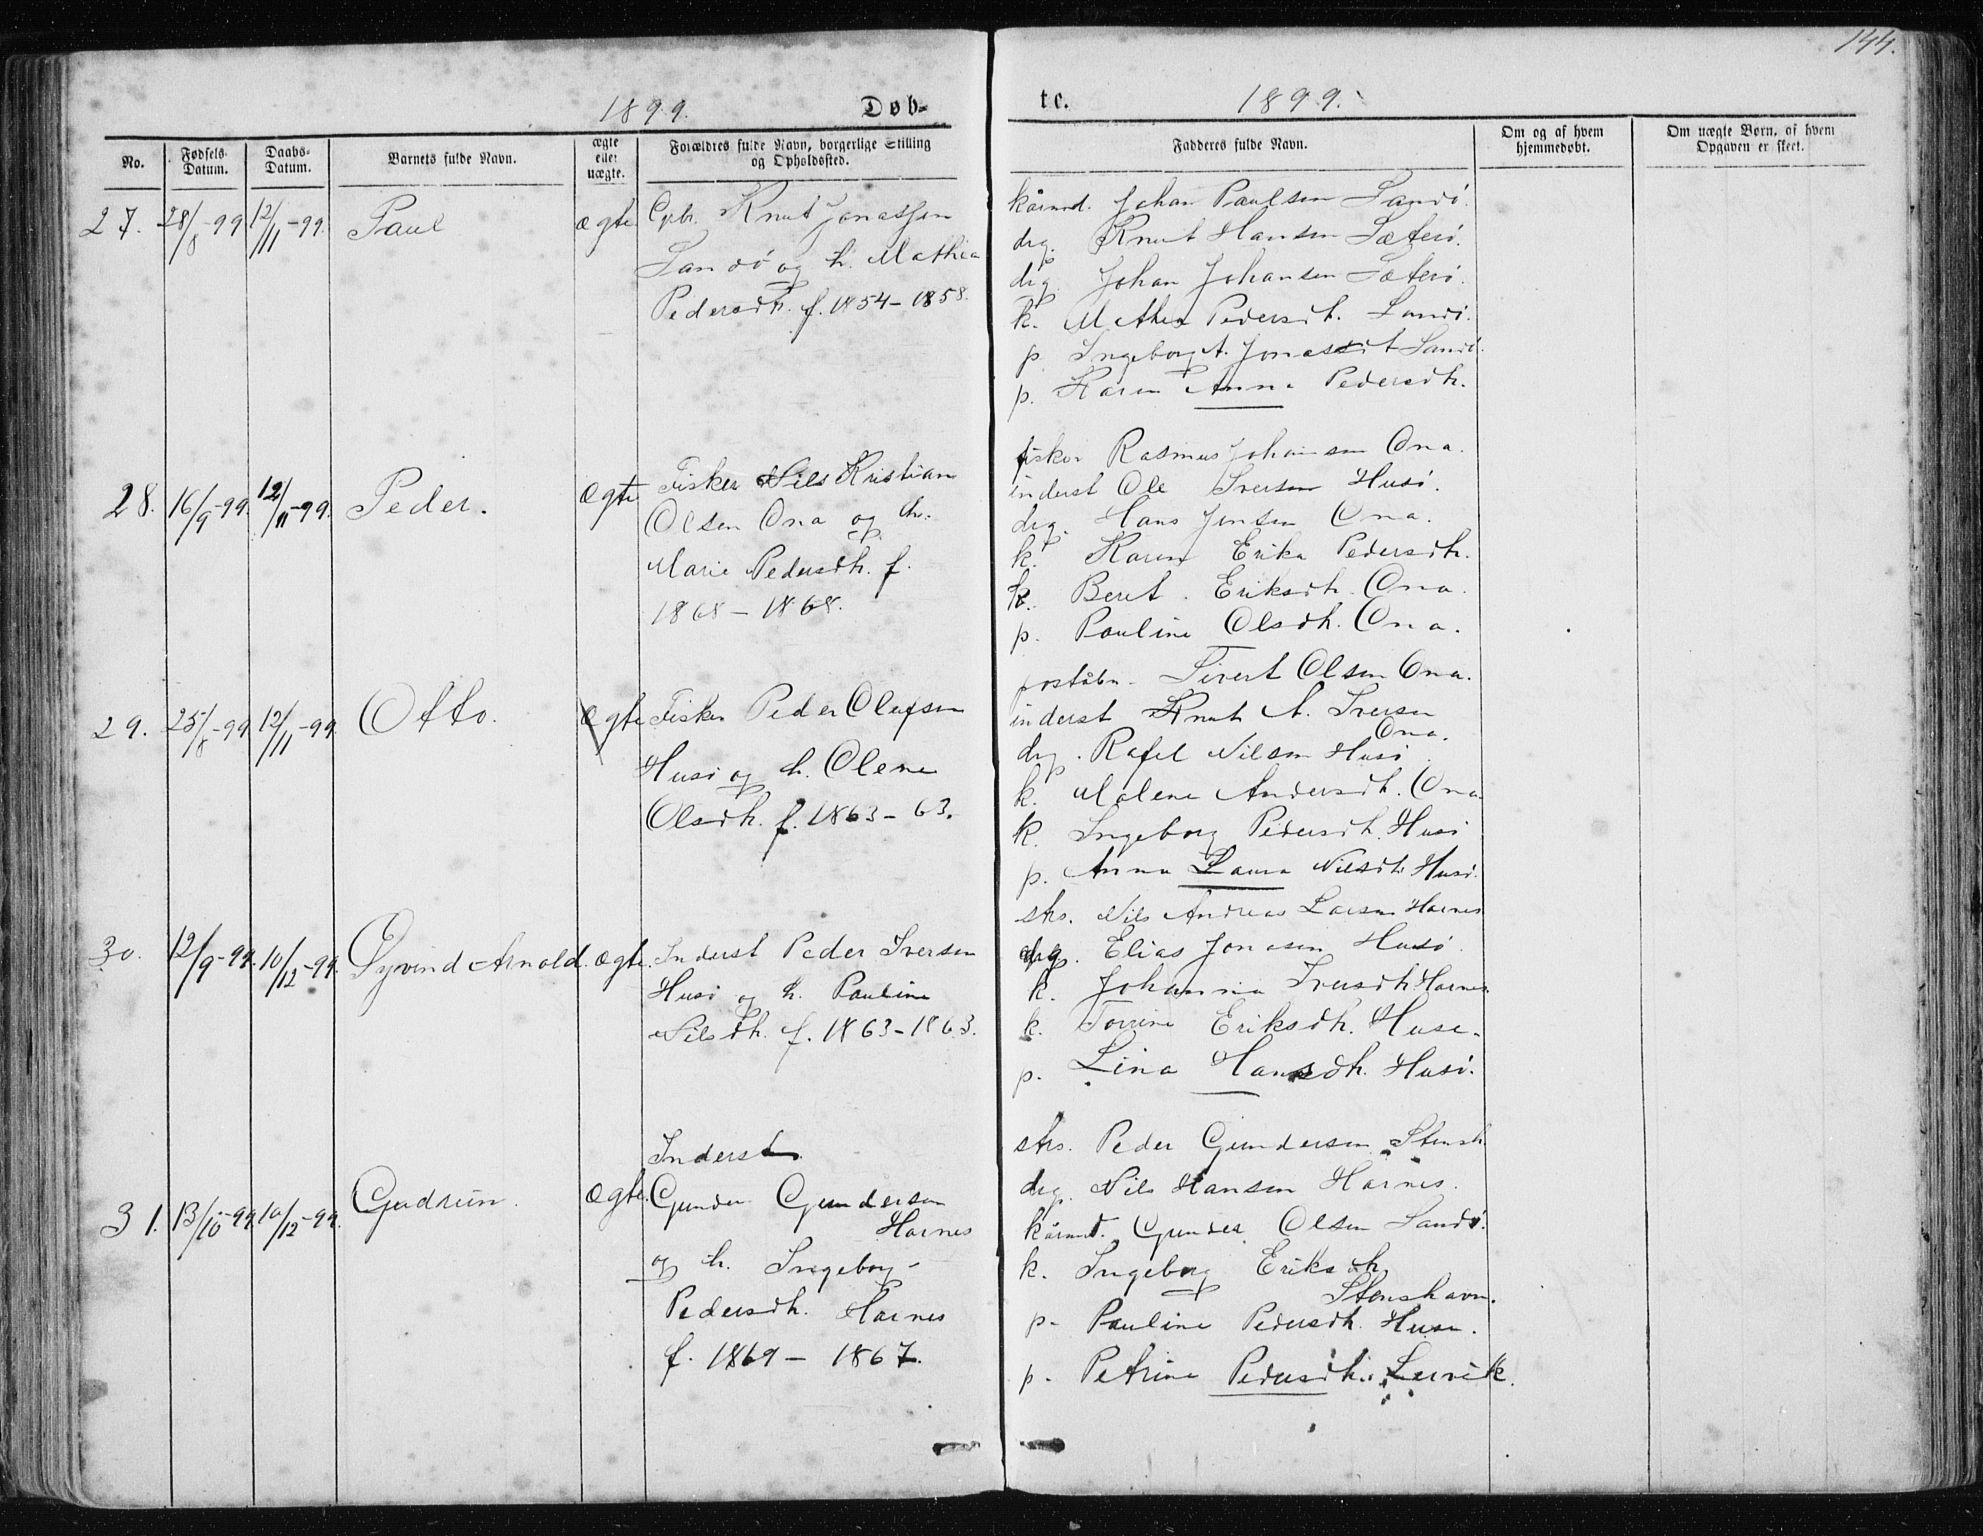 144.
1899. Døb-
te. 1899.
No.
Fødsels-Datum.
Daabs-Datum.
Barnets fulde Navn.
ægte eller uægte.
Forældres fulde Navn, borgerlige Stilling og Opholdssted.
Fadderes fulde Navn.
Om og af hvem hjemmedøbt.
Om uægte Børn, af hvem Opgaven er skeet.
27. 28/8-99 12/11-99. Paul ægte. Gbr. Knut Jonassen
Sandø og h. Mathea
Pedersdtr. f. 1854-1858.
kårmd. Johan Paulsen Sandø.
drg. Knut Hansen Sæterø.
drg. Johan Johansen Sæterø.
k. Mathea Pedersdt. Sandø.
p. Ingeborg A. Jonasdt Sandø.
p. Karen Anna Pedersdtr.
28. 16/9-99. 12/11-99. Peder. ægte Fisker Nils Kristian
Olsen Ona og h.
Marie Pedersdtr. f.
1868-1868.
fisker Rasmus Johansen Ona.
inderst Ole Iversen Husø.
drg. Hans Jensen Ona.
k. Karen Erika Pedersdtr.
k. Beret Eriksdtr. Ona.
p. Pauline Olsdtr. Ona.
29. 25/8-99 12/11-99. Otto. ægte Fisker Peder Olufsen
Husø og h. Olene
Olsdtr. f. 1863-63.
poståbn. Sivert Olsen Ona.
inderst Knut A. Iversen
Ona.
drg. Rafel Nilsen Husø.
k. Malene Andersdtr. Ona.
k. Ingeborg Pedersdtr. Husø
p. Anna Laura Nilsdtr Husø.
30. 12/9-99. 10/12-99. Øyvind Arnold. ægte. Inderst Peder Iversen
Husø og h. Pauline
Nilsdtr. f. 1863-1863.
strs. Nils Andreas Larsen Harnes
drg. Elias Jonasen Husø.
k. Johanna Iversdtr. Harnes.
k. Eriksdtr. Husø.
p. Lina Hansdtr. Husø.
31. 13/10-99. 10/12-99. Gudrun. ægte. Inderst
Gunder Gundersen
Harnes
og h. Ingeborg
Pedersdtr. Harnes
f. 1869-1867.
strs. Peder Gundersen Stensh.
drg. Nils Hansen Harnes.
kårmd. Gunder Olsen Sandø.
k. Ingeborg Eriksdtr.
Stenshavn.
p. Pauline Pedersdtr. Husø.
p. Petrine Pedersdtr. Lervik.